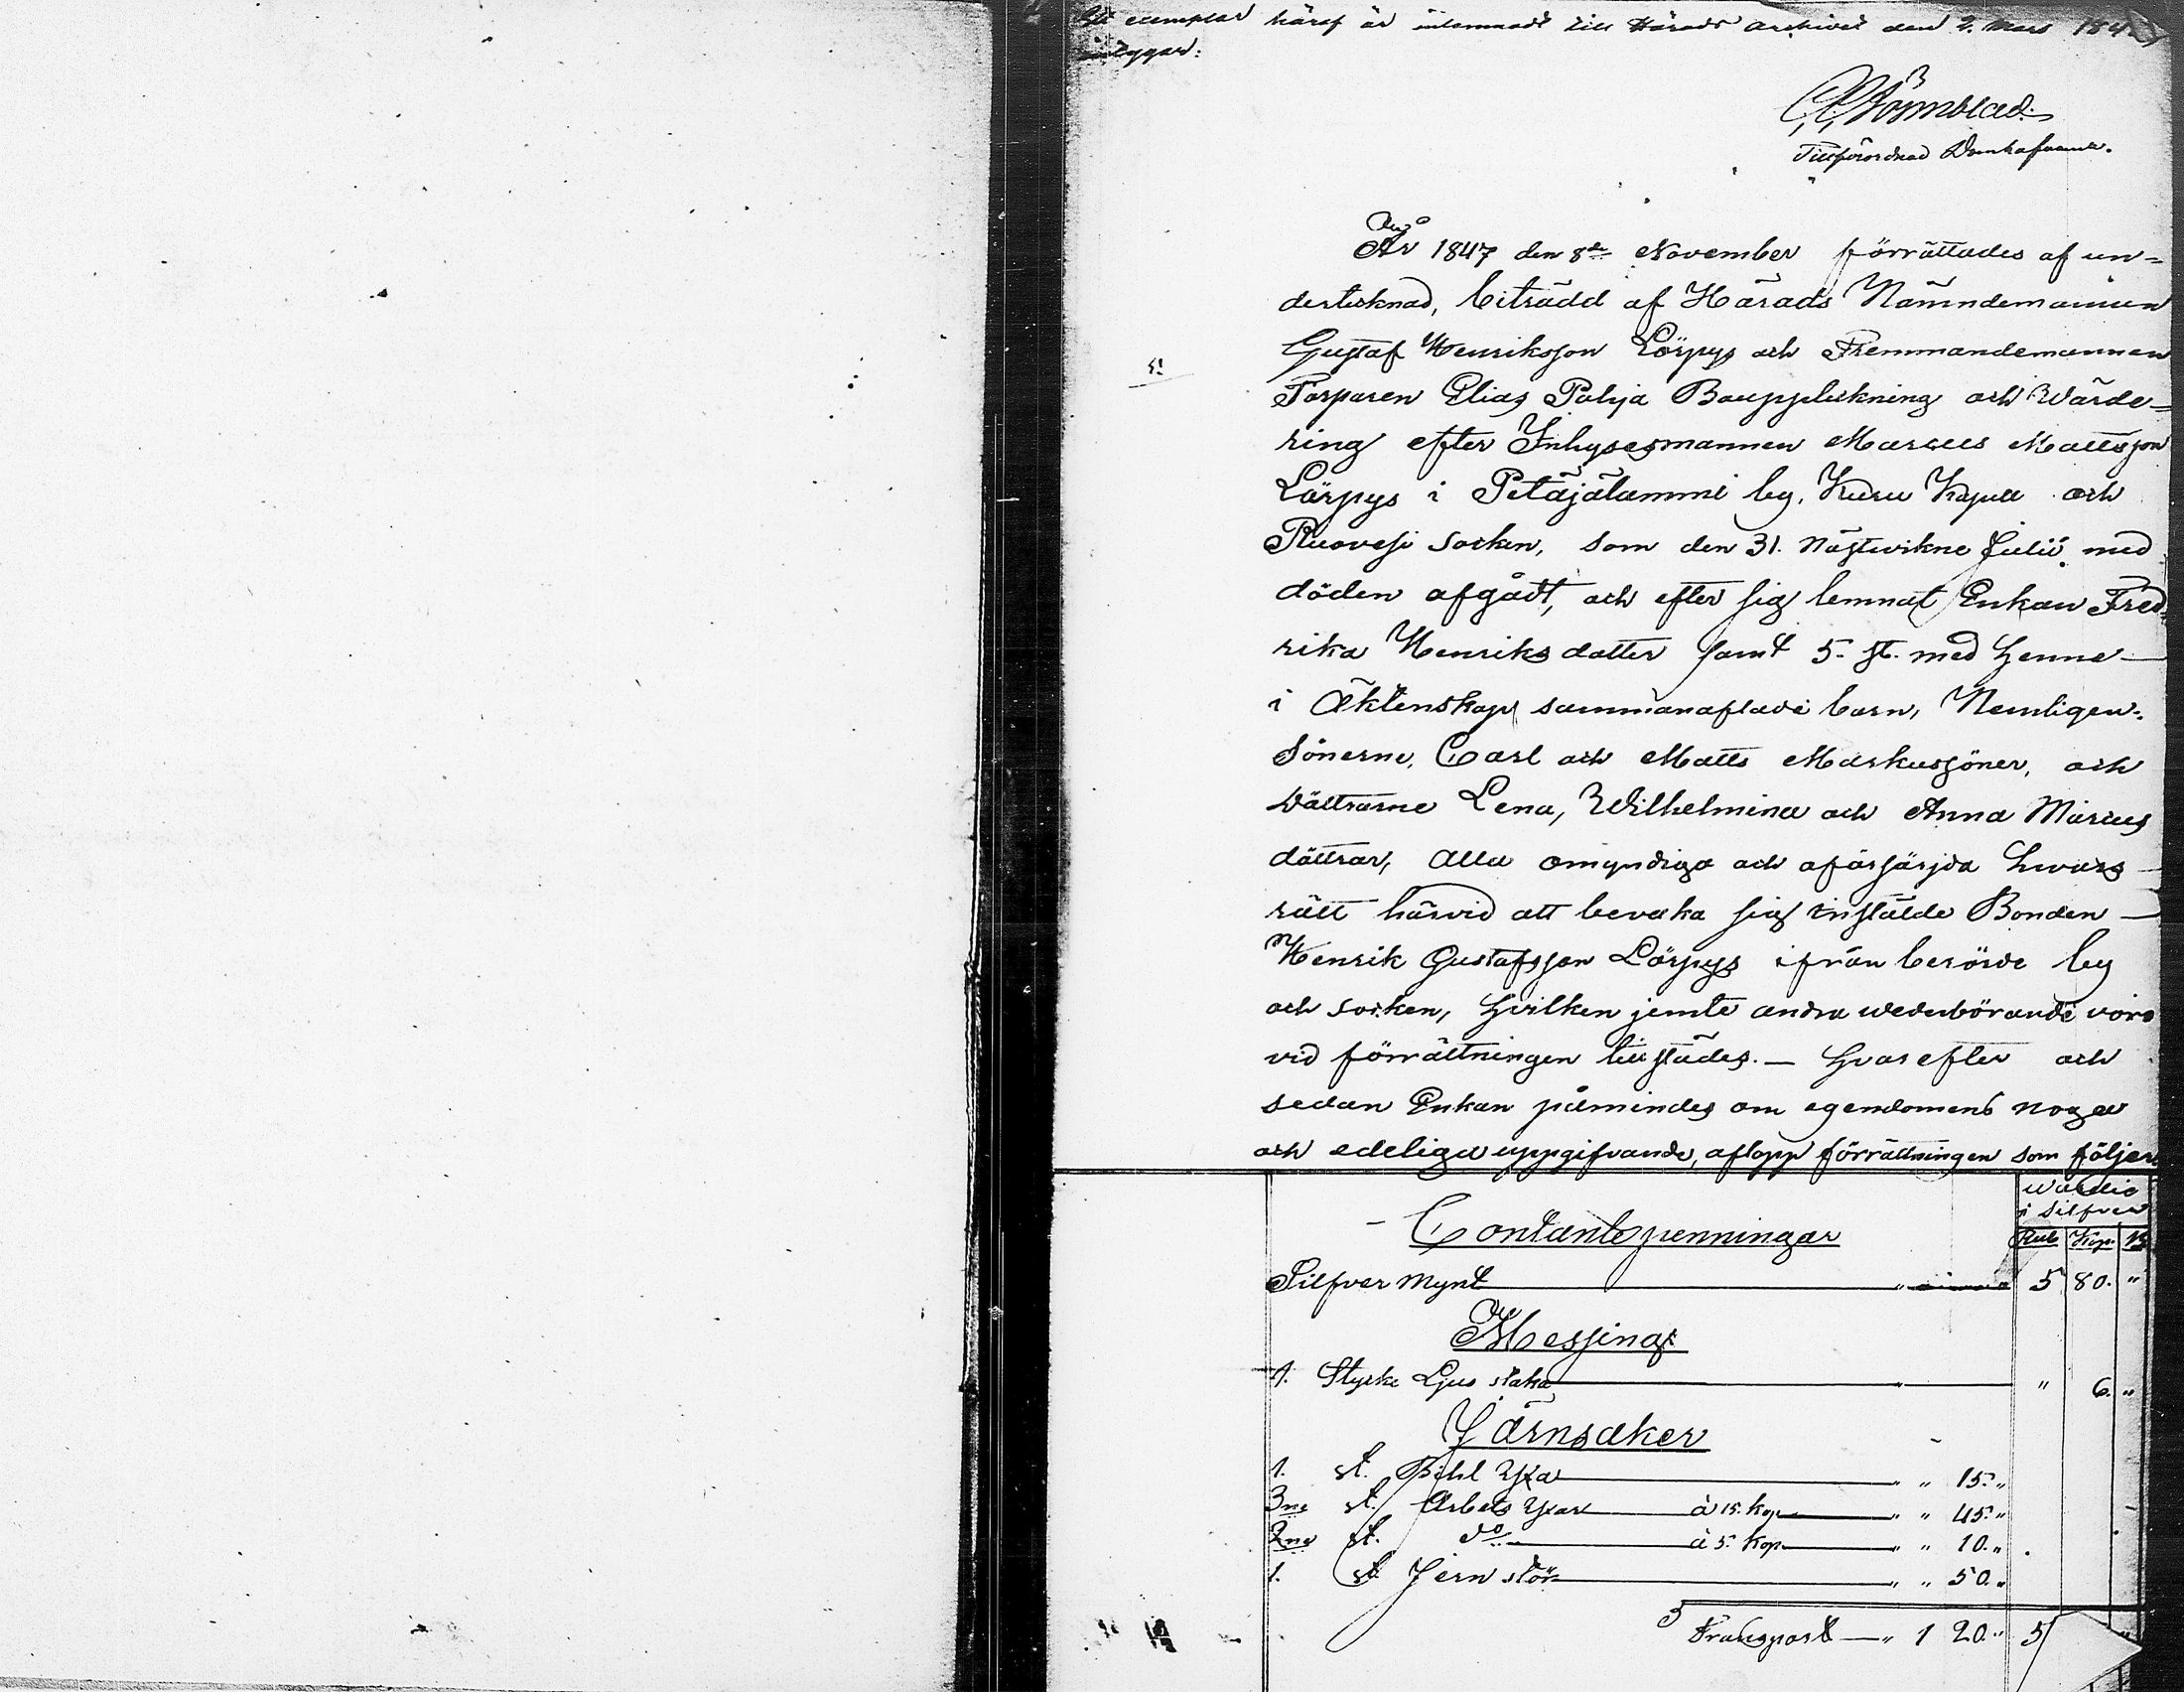 Ett exemplar häraf är inlemnadt till Härads archivet den 2. Mars 184
Tillförordnad Domhafvande.
År 1847 den 8de November förrättades af un=
dertecknad, biträdd af Härads Nämndemannen
Gustaf Henriksson Lörpys och Fremmandemannen
Torparen Elias Pohja Bouppteckning och Wärde=
ring efter Inhysesmannen Marcus Mattsson
Lörpys i Petäjälammi by, Kuru Kapell och
Ruovesi Socken, som den 31. nästvikne Julii med
döden afgått, och efter sig lemnat Enkan Fred=
rika Henriksdotter samt 5. st. med henne —
i Äktenskap sammanaflade barn, Nemligen:
Sönerne, Carl och Matts Markussöner, och
Döttrarne Lena, Wilhelmina och Anna Marcus
döttrar, alla omyndiga och oförsörjda hvars —
rätt härvid att bevaka sig instälde Bonden —
Henrik Gustafsson Lörpys ifrån berörde by
och socken, hvilken jemte andra wederbörande voro
vid förrättningen tillstädes. — Hvarefter och
sedan Enkan påmindes om egendomens noga
och edeliga uppgifvande, aflopp förrättningen som följer
Wärde
i Silfver
Contante penningar
Rub Kop.
Silfver Mynt — " 5 80. "
Messing
1. Stycke Ljus staka — " " 6. "
Järnsaker
1. st. Bihl Yxa — " " 15. "
3ne st. Arbets Yxor — à 15. kop — " " 45. "
2ne st. do — à 5. kop — " " 10. "
1. st Jern stör — " " 50. "
Transport — " 1 20. " 5